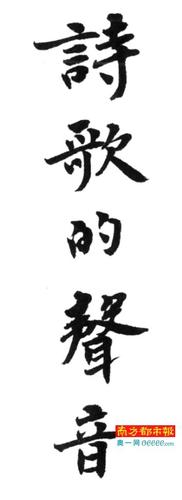 詩歌的聲音
南方都市報
奥一网 oeeee.com